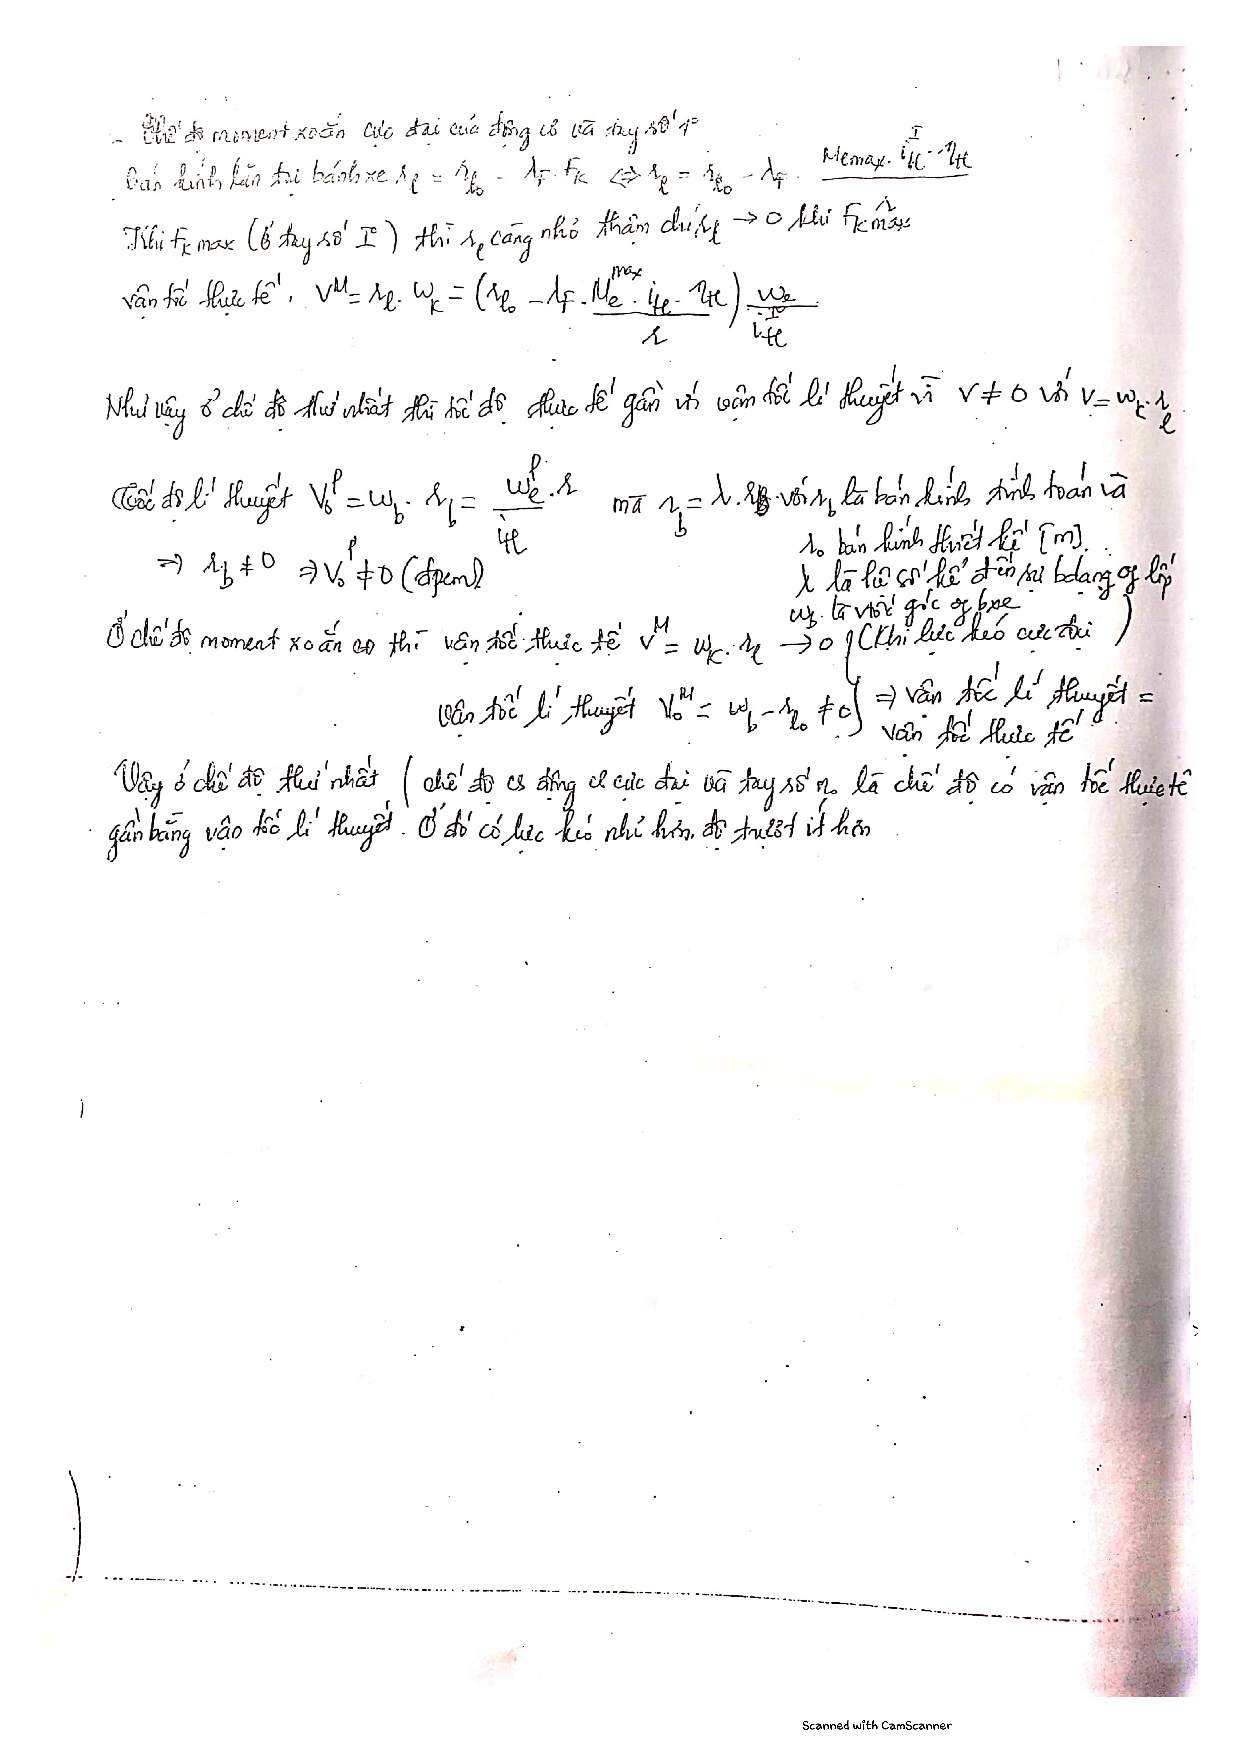 - Chế độ moment xoắn cực đại của động cơ và tay số 1°
Bán kính lăn tại bánh xe r_l = r_lo - λ_F. F_k <=> r_l = r_lo - λ_F. Memax. i_tl^I. η_tl / r
Khi F_k max (ở tay số I) thì r_l càng nhỏ thậm chí r_l → 0 khi F_k max
vận tốc thực tế. V^M = r_l. ω_k = (r_lo - λ_F. M_e^max. i_tl. η_tl / r) ω_e / i_tl^I
Như vậy ở chế độ thứ nhất thì tốc độ thực tế gần với vận tốc lí thuyết vì V ≠ 0 với V = ω_k. r_l
Tốc độ lí thuyết V_o^P = ω_b. r_b = ω_e^P. r / i_tl mà r_b = λ. r_o với r_b là bán kính tính toán và
r_o bán kính thiết kế [m].
=> r_b ≠ 0 => V_o^P ≠ 0 (đpcm)
λ là hệ số kể đến sự bdạng of lốp
ω_b là vtốc góc of bxe
Ở chế độ moment xoắn thì vận tốc thực tế V^M = ω_k. r_l → 0 (Khi lực kéo cực đại)
vận tốc lí thuyết V_o^M = ω_b - r_lo ≠ 0 } => vận tốc lí thuyết =
vận tốc thực tế
Vậy ở chế độ thứ nhất (chế độ cs động cơ cực đại và tay số n. là chế độ có vận tốc thực tế
gần bằng vận tốc lí thuyết. Ở đó có lực kéo nhỏ hơn. độ trượt ít hơn
Scanned with CamScanner